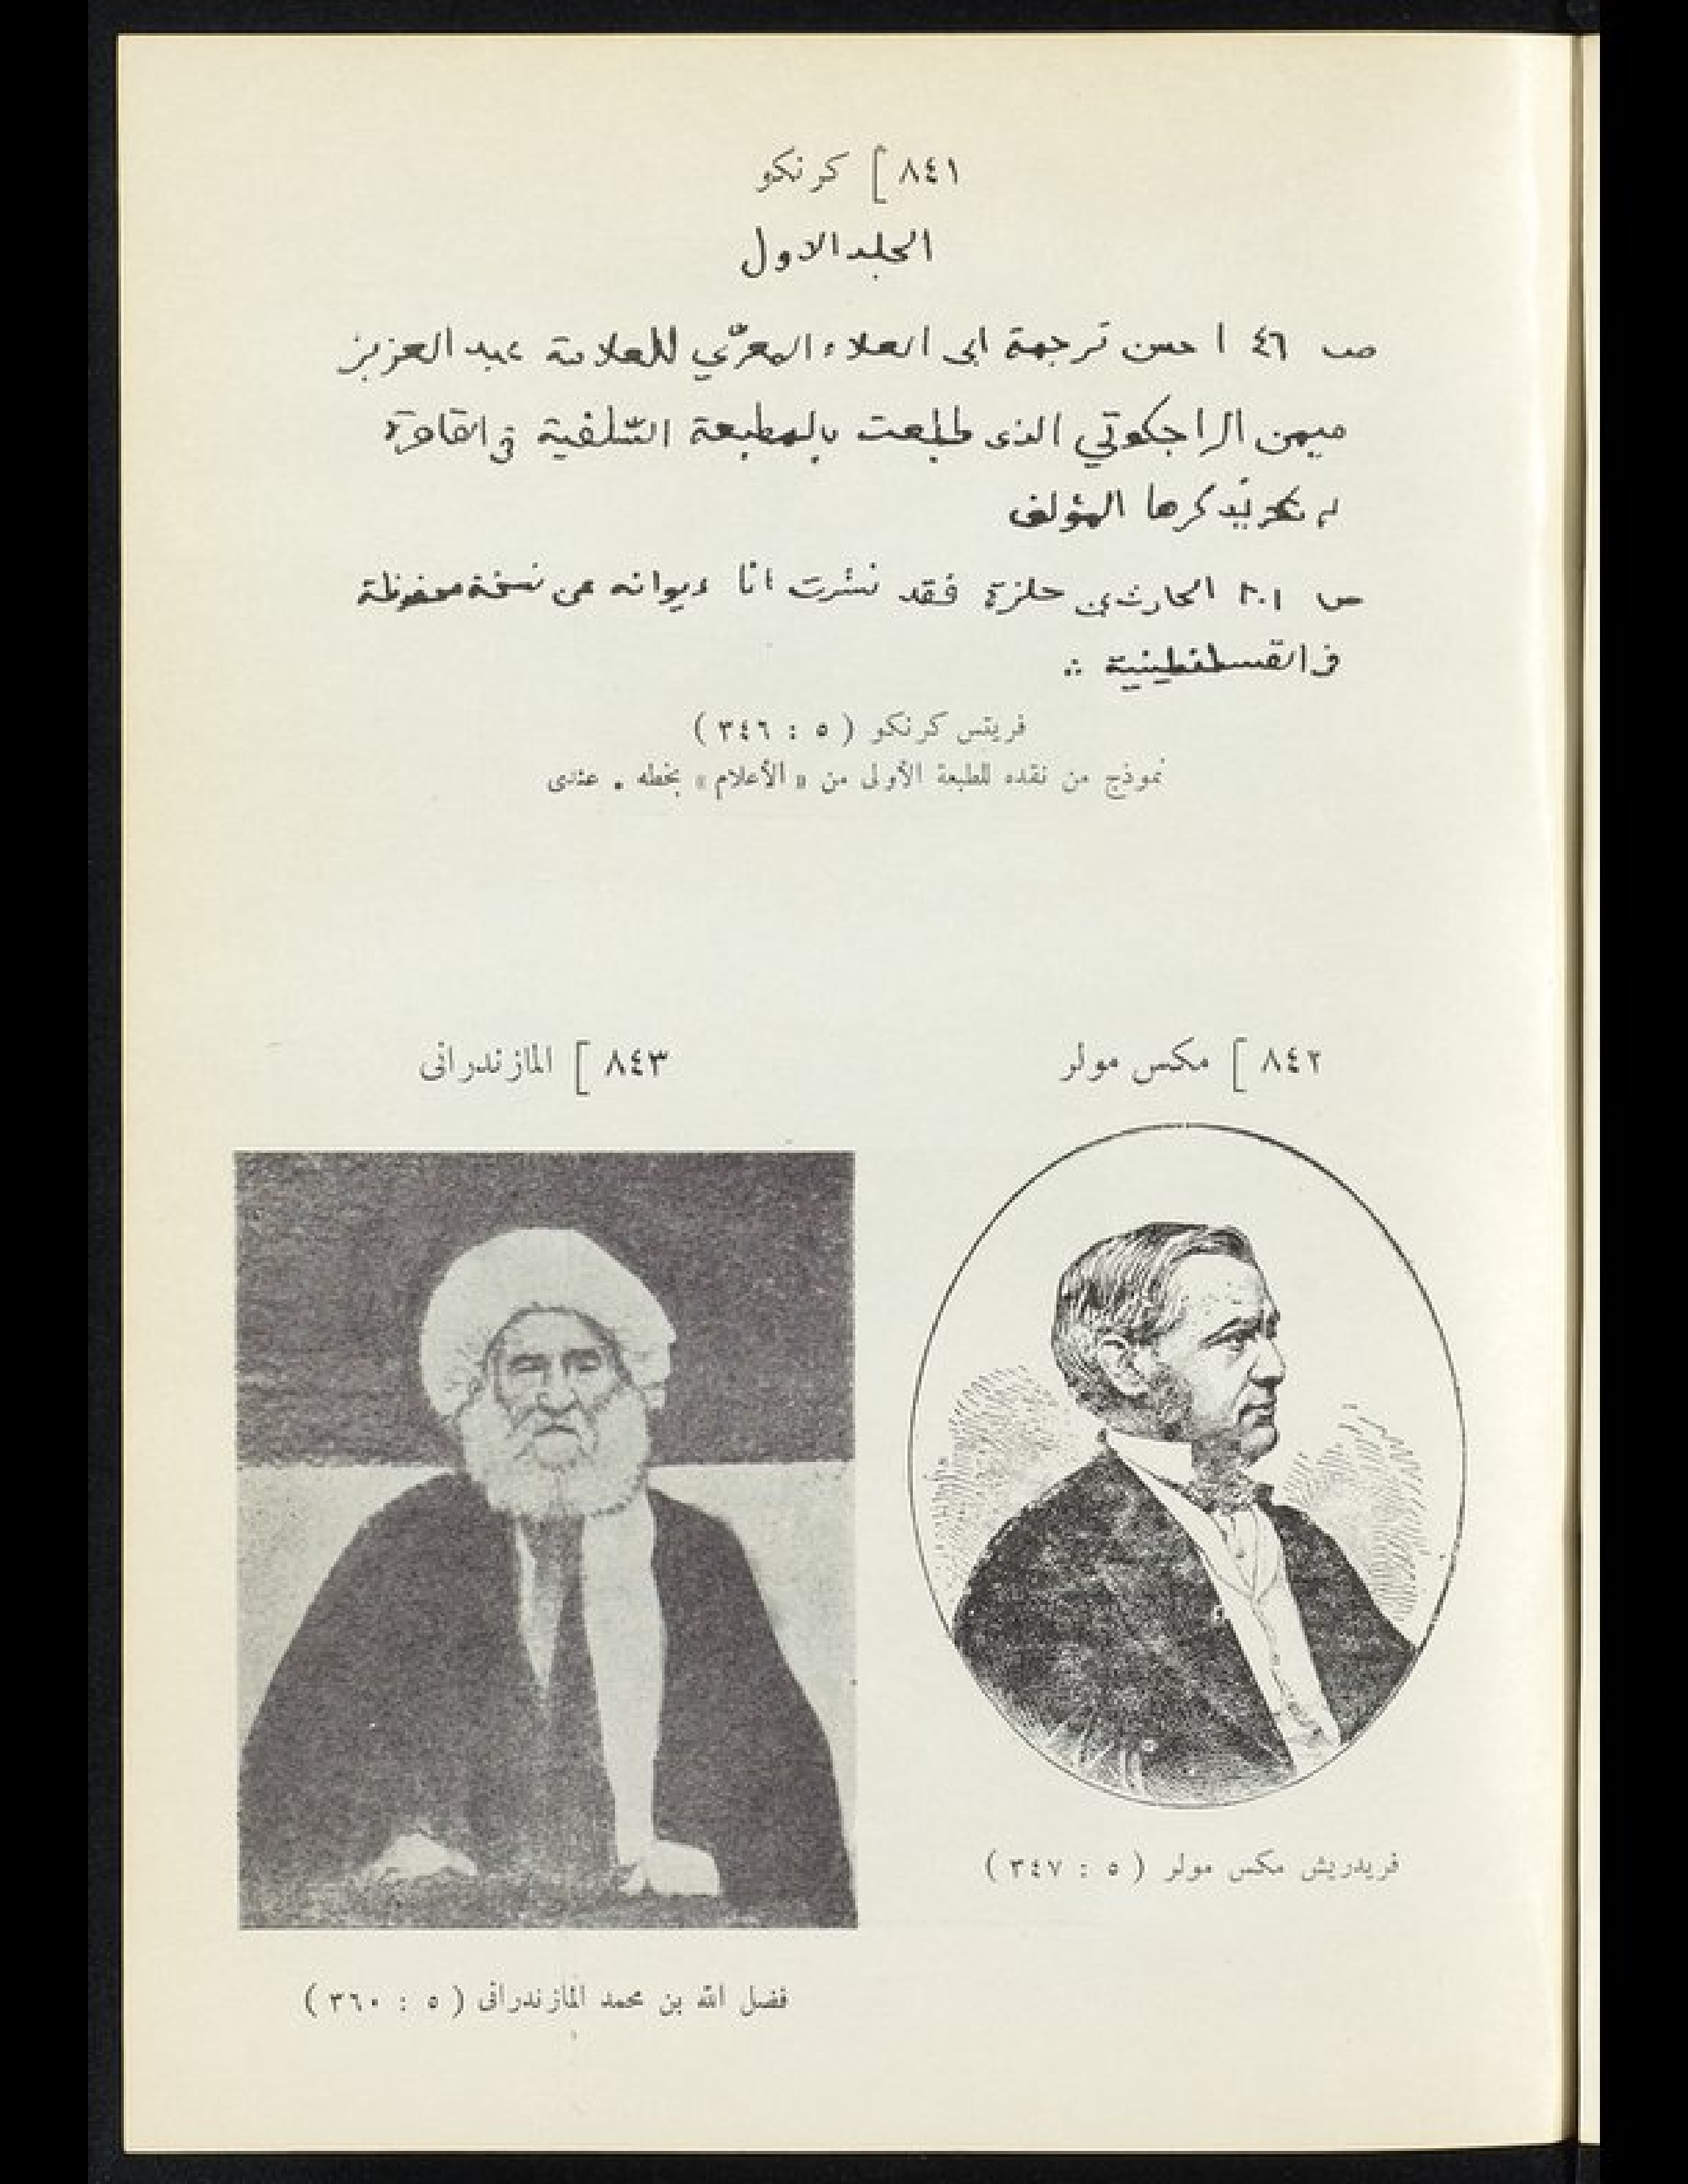 ٨٤١ ] كرنكو
المجلد الاول
صـ ٤٦ احسن ترجمة ابى العلاء المعرّي للعلامة عبد العزيز
ميمن الراجكوتي الذى طبعت بالمطبعة السّلفية فى القاهرة
لم يذكرها المؤلف
ص ٢٠١ الحارث بن حلزة فقد نشرت انا ديوانه عن نسخة محفوظة
فى القسطنطينية ∴
فريتس كرنكو ( ٥ : ٣٤٦ )
نموذج من نقده للطبعة الأولى من « الأعلام » بخطه . عندى
٨٤٢ ] مكس مولر
فريدريش مكس مولر ( ٥ : ٣٤٧ )
٨٤٣ ] المازندرانى
فضل الله بن محمد المازندرانى ( ٥ : ٣٦٠ )